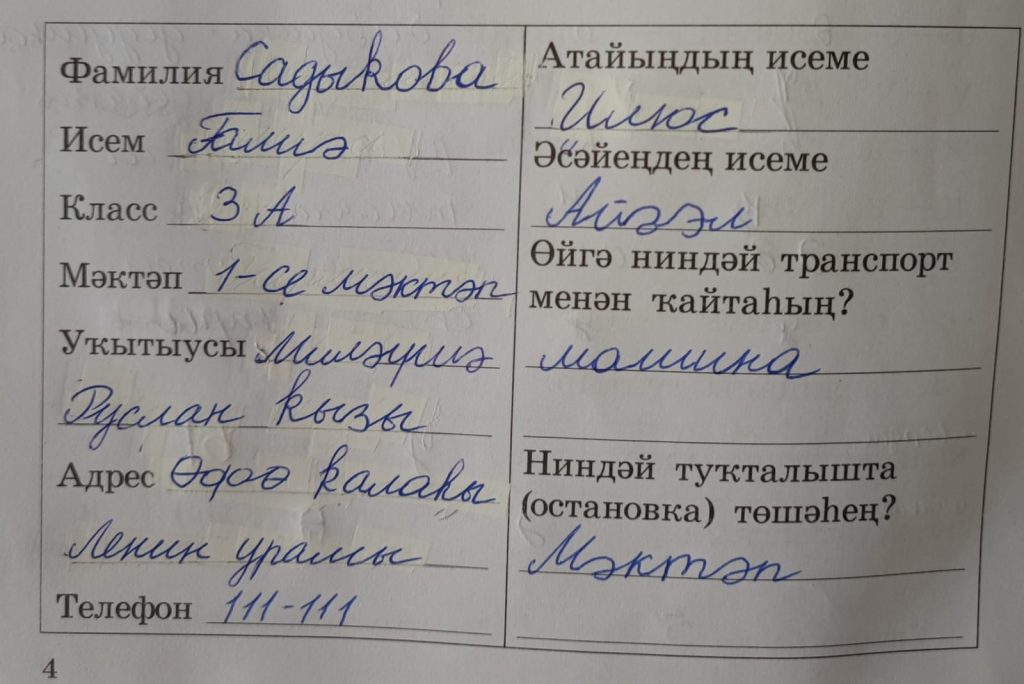 Фамилия Садыкова
Исем Ғәлиә
Класс 3 А
Мәктәп 1-се мәктәп
Уҡытыусы Миләүшә
Руслан ҡыҙы
Адрес Өфө ҡалаһы
Ленин урамы
Телефон 111-111
Атайыңдың исеме
Илюс
Әсәйеңдең исеме
Айгөл
Өйгә ниндәй транспорт
менән ҡайтаһың?
машина
Ниндәй туҡталышта
(остановка) төшәһең?
Мәктәп
4